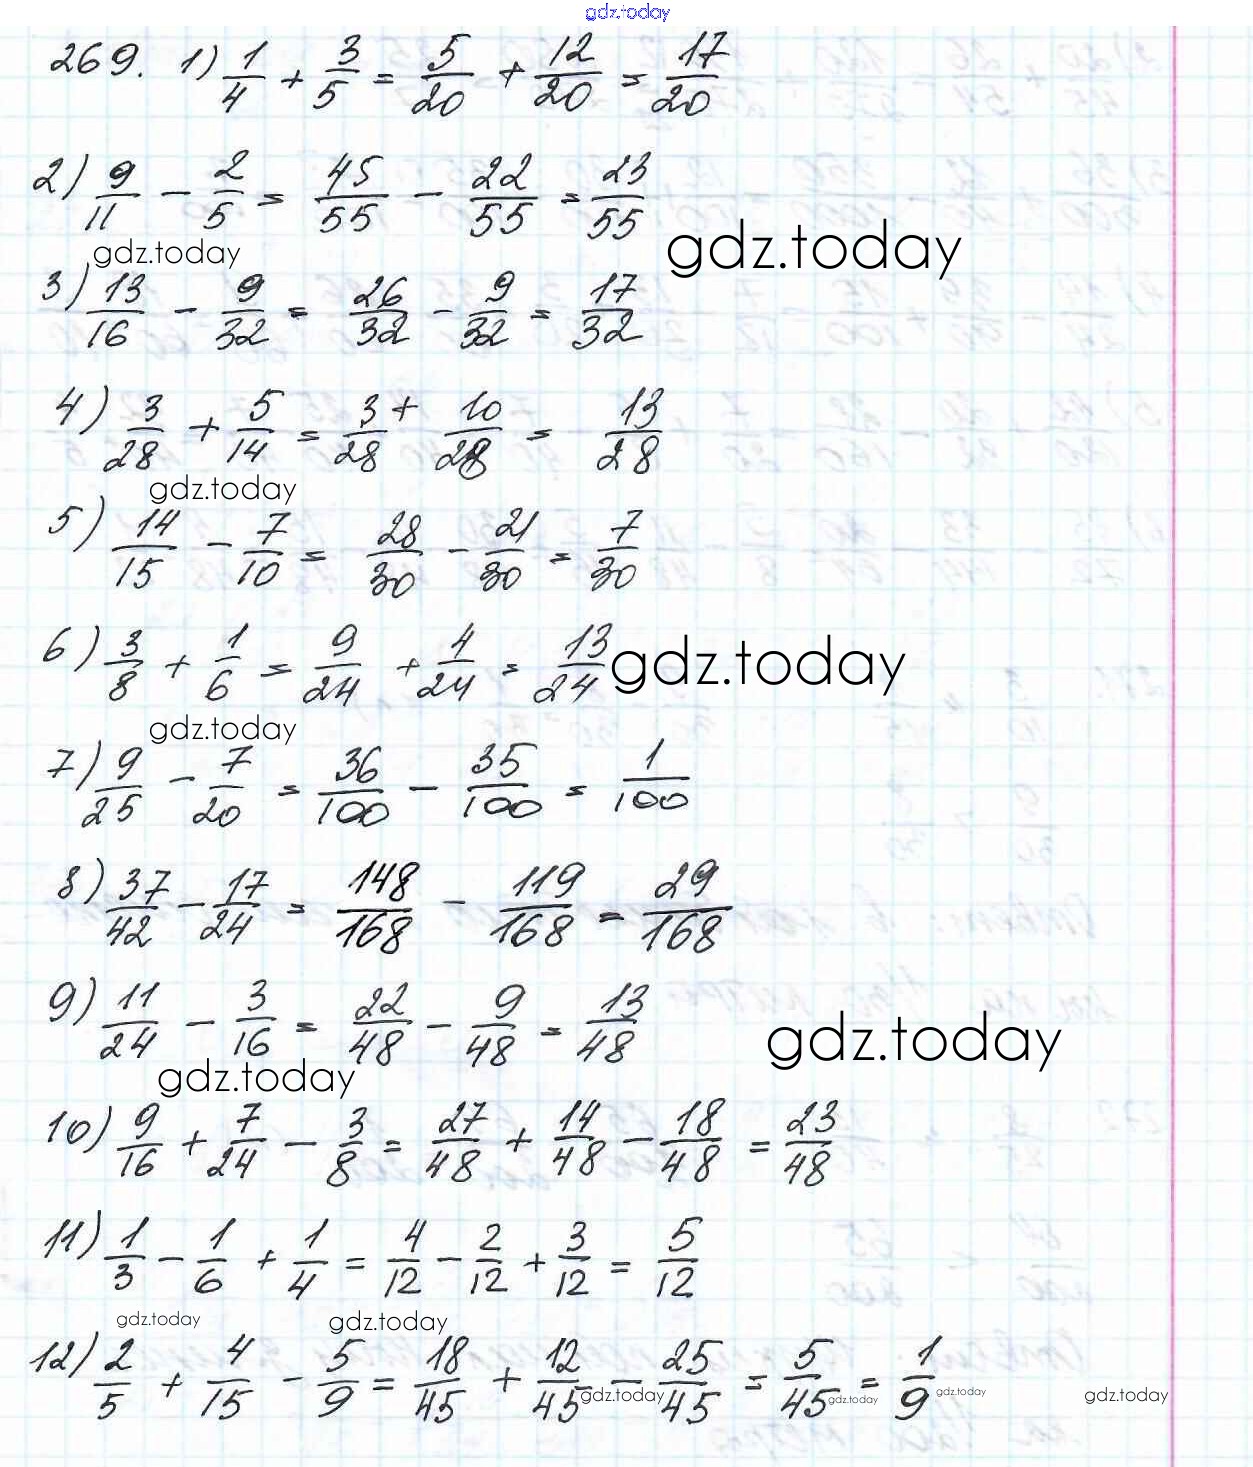 gdz.today
269. 1) 1/4 + 3/5 = 5/20 + 12/20 = 17/20
2) 9/11 - 2/5 = 45/55 - 22/55 = 23/55
gdz.today gdz.today
3) 13/16 - 9/32 = 26/32 - 9/32 = 17/32
4) 3/28 + 5/14 = 3/28 + 10/28 = 13/28
gdz.today
5) 14/15 - 7/10 = 28/30 - 21/30 = 7/30
6) 3/8 + 1/6 = 9/24 + 4/24 = 13/24 gdz.today
gdz.today
7) 9/25 - 7/20 = 36/100 - 35/100 = 1/100
8) 37/42 - 17/24 = 148/168 - 119/168 = 29/168
9) 11/24 - 3/16 = 22/48 - 9/48 = 13/48 gdz.today
gdz.today
10) 9/16 + 7/24 - 3/8 = 27/48 + 14/48 - 18/48 = 23/48
11) 1/3 - 1/6 + 1/4 = 4/12 - 2/12 + 3/12 = 5/12
gdz.today gdz.today
12) 2/5 + 4/15 - 5/9 = 18/45 + 12/45 - 25/45 = 5/45 = 1/9
gdz.today gdz.today gdz.today gdz.today